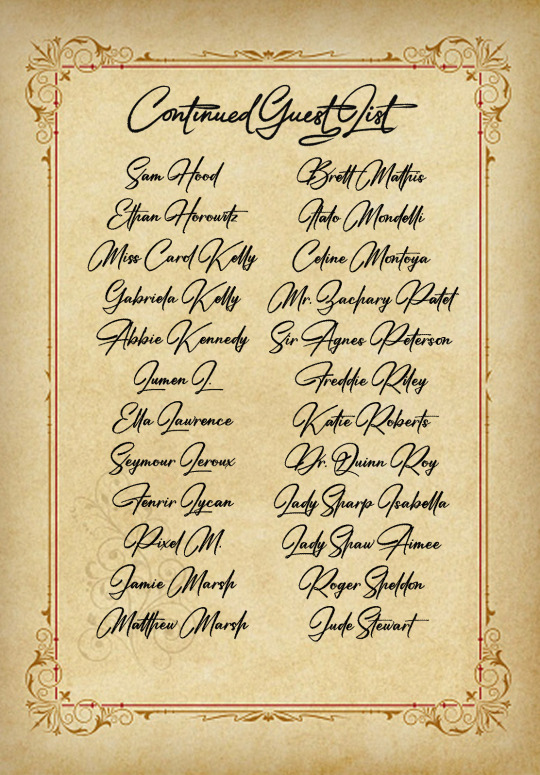 Continued Guest List
Sam Hood
Ethan Horowitz
Miss Carol Kelly
Gabriela Kelly
Abbie Kennedy
Lumen L.
Ella Lawrence
Seymour Leroux
Fenrir Lycan
Pixel M.
Jamie Marsh
Matthew Marsh
Brett Mathis
Italo Mondelli
Celine Montoya
Mr. Zachary Patel
Sir Agnes Peterson
Freddie Riley
Katie Roberts
Dr. Quinn Roy
Lady Sharp Isabella
Lady Shaw Aimee
Roger Sheldon
Jude Stewart